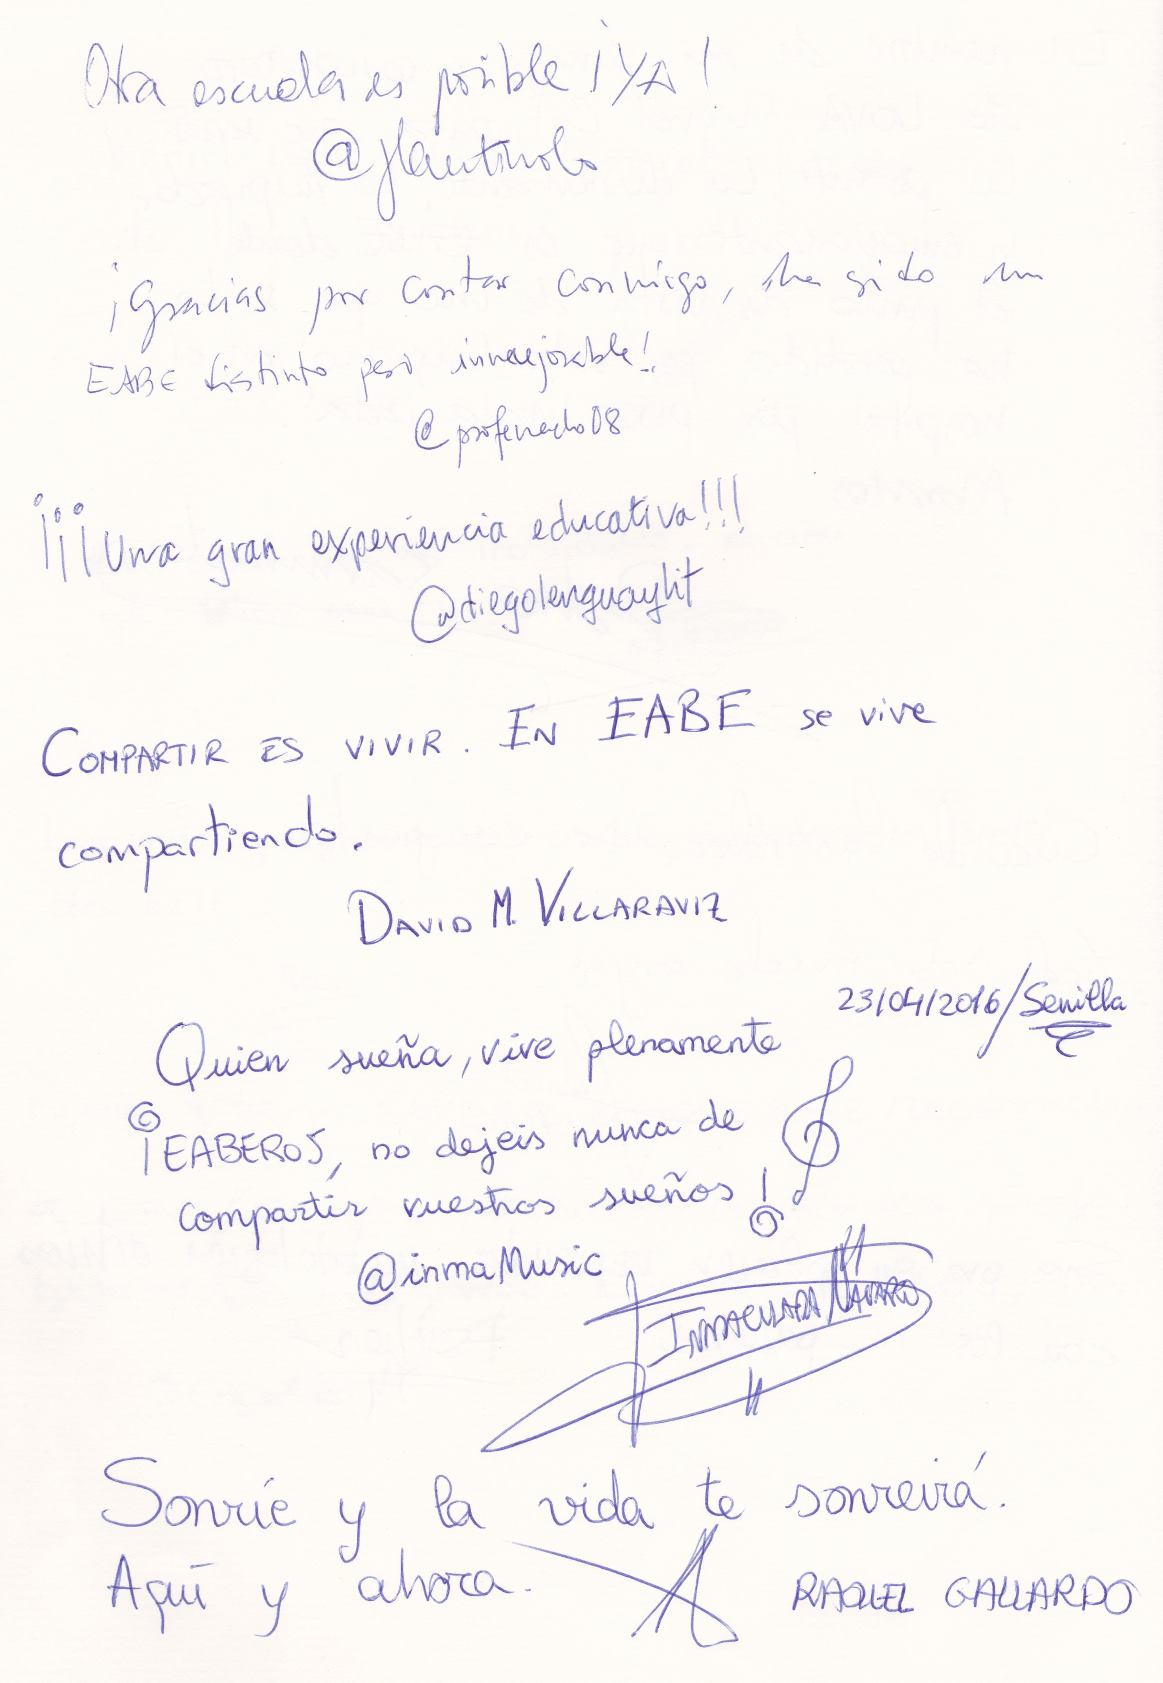 Otra escuela es posible ¡YA!
@flautinolo
¡Gracias por contar conmigo, ha sido un
EABE distinto pero inmejorable!
@profenacho08
¡¡¡Una gran experiencia educativa!!!
@diegolenguaylit
COMPARTIR ES VIVIR. EN EABE se vive
compartiendo.
DAVID M. VILLARAVIZ
23/04/2016/Sevilla
Quien sueña, vive plenamente
¡EABEROS, no dejeis nunca de
compartir vuestros sueños!
@inmaMusic
INMACULADA NAVARRO
Sonríe y la vida te sonreirá.
Aquí y ahora.
RAQUEL GALLARDO